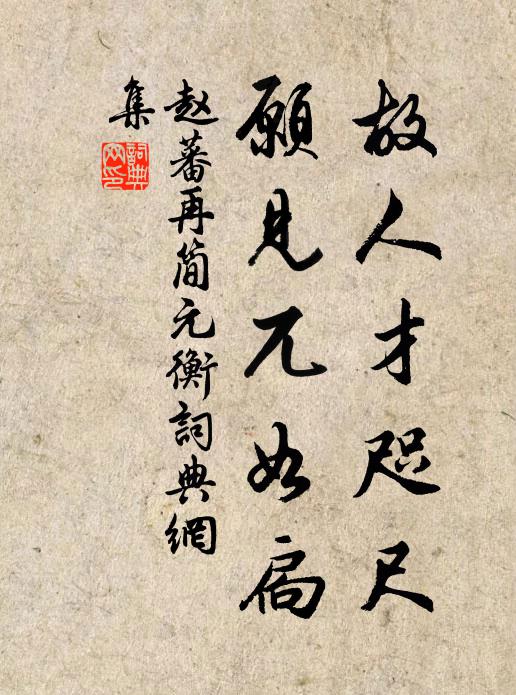 故人才咫尺
願見兀如扃
赵蕃再简元衡詞典網
集
詞典
网印